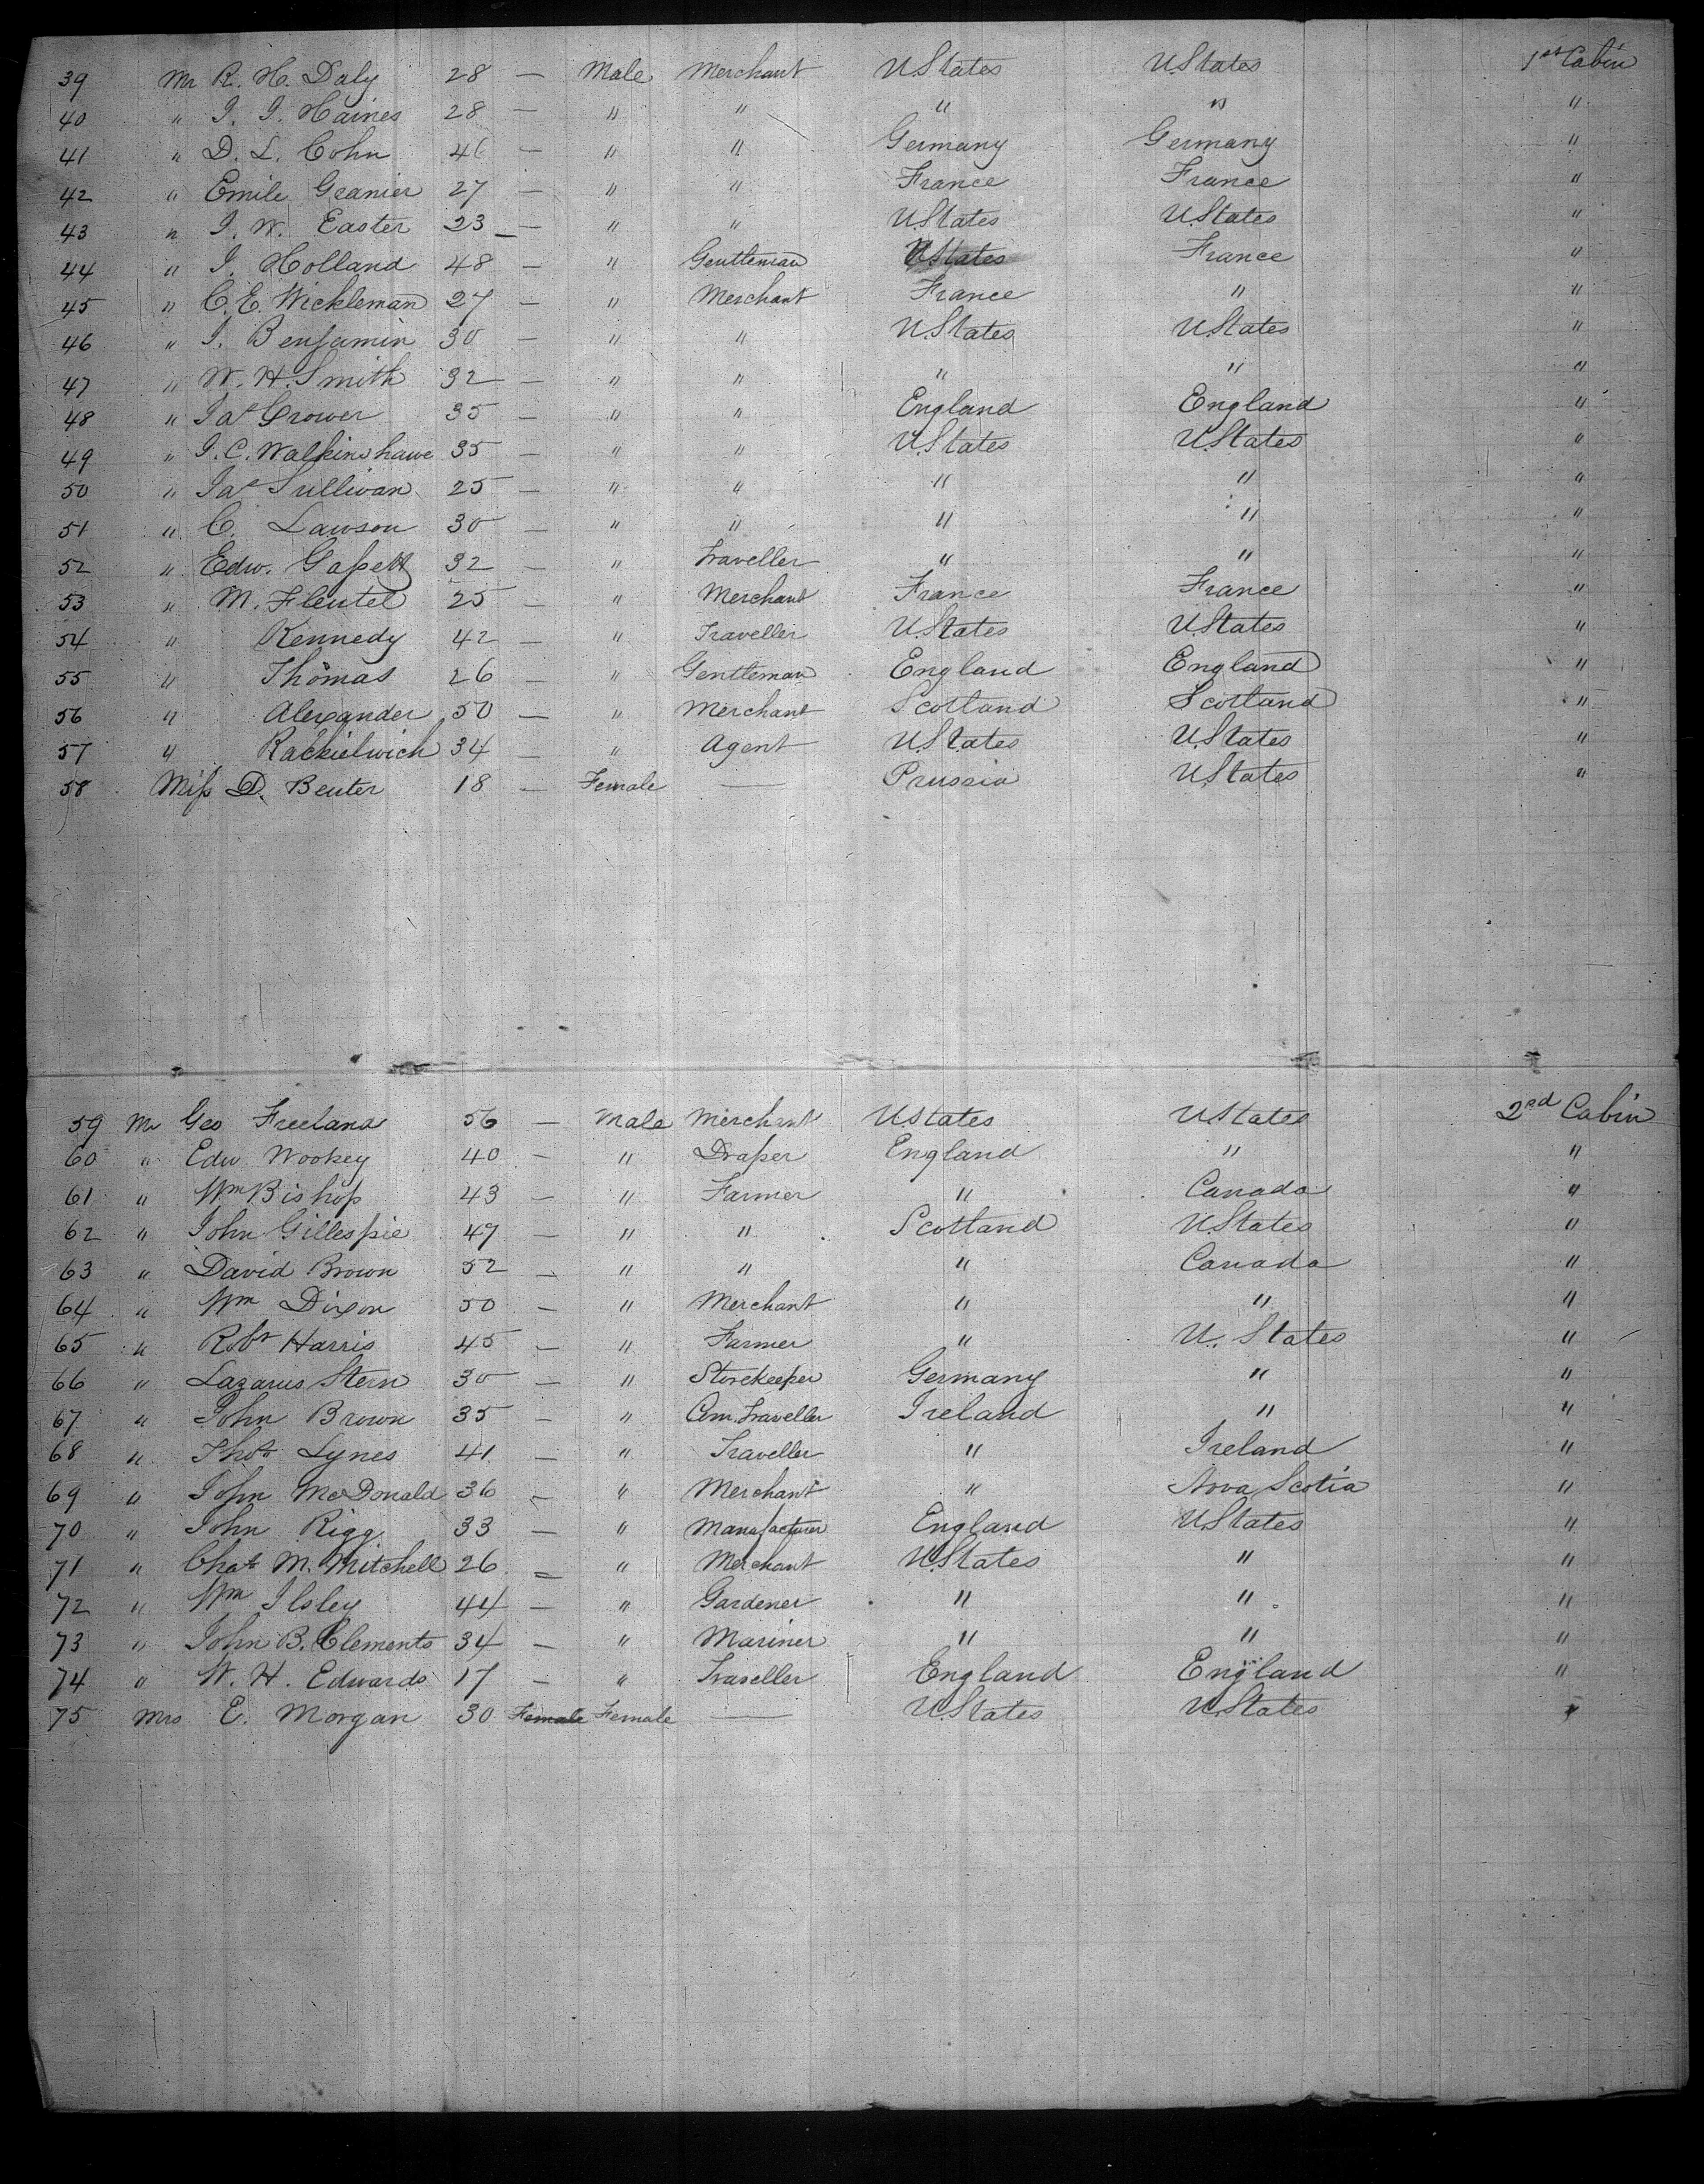 39 Mr R. H. Daly 28 — Male Merchant U States U States 1st Cabin
40 " J. J. Haines 28 — " " " " "
41 " D. L. Cohn 46 — " " Germany Germany "
42 " Emile Granier 27 — " " France France "
43 " J. W. Easter 23 — " " U States U States "
44 " J. Holland 48 — " Gentleman U States France "
45 " C. E. Wickleman 27 — " Merchant France " "
46 " J. Benjamin 30 — " " U States U States "
47 " W. H. Smith 32 — " " " " "
48 " Jas Grower 35 — " " England England "
49 " J. C. Walkinshawe 35 — " " U States U States "
50 " Jas Sullivan 25 — " " " " "
51 " C. Lawson 30 — " " " " "
52 " Edw. 32 — " Traveller " " "
53 " M. Fleutel 25 — " Merchant France France "
54 " Kennedy 42 — " Traveller U States U States "
55 " Thomas 26 — " Gentleman England England "
56 " Alexander 50 — " Merchant Scotland Scotland "
57 " Rackielwich 34 — " Agent U States U States "
58 Miss D. Beuter 18 — Female — Prussia U States "
59 Mr Geo Freeland 56 — Male Merchant U States U States 2nd Cabin
60 " Edw Wookey 40 — " Draper England " "
61 " Wm Bishop 43 — " Farmer " Canada "
62 " John Gillespie 47 — " " Scotland U States "
63 " David Brown 52 — " " " Canada "
64 " Wm Dixon 50 — " Merchant " " "
65 " Robt Harris 45 — " Farmer " U. States "
66 " Lazarus Stern 30 — " Storekeeper Germany " "
67 " John Brown 35 — " Com. Traveller Ireland " "
68 " Thos Lynes 41 — " Traveller " Ireland "
69 " John McDonald 36 — " Merchant " Nova Scotia "
70 " John Rigg 33 — " Manufacturer England U States "
71 " Chas M. Mitchell 26 — " Merchant U States " "
72 " Wm Ilsley 44 — " Gardener " " "
73 " John B. Clements 34 — " Mariner " " "
74 " W. H. Edwards 17 — " Traveller England England "
75 Mrs E. Morgan 30 Female Female — U States U States "